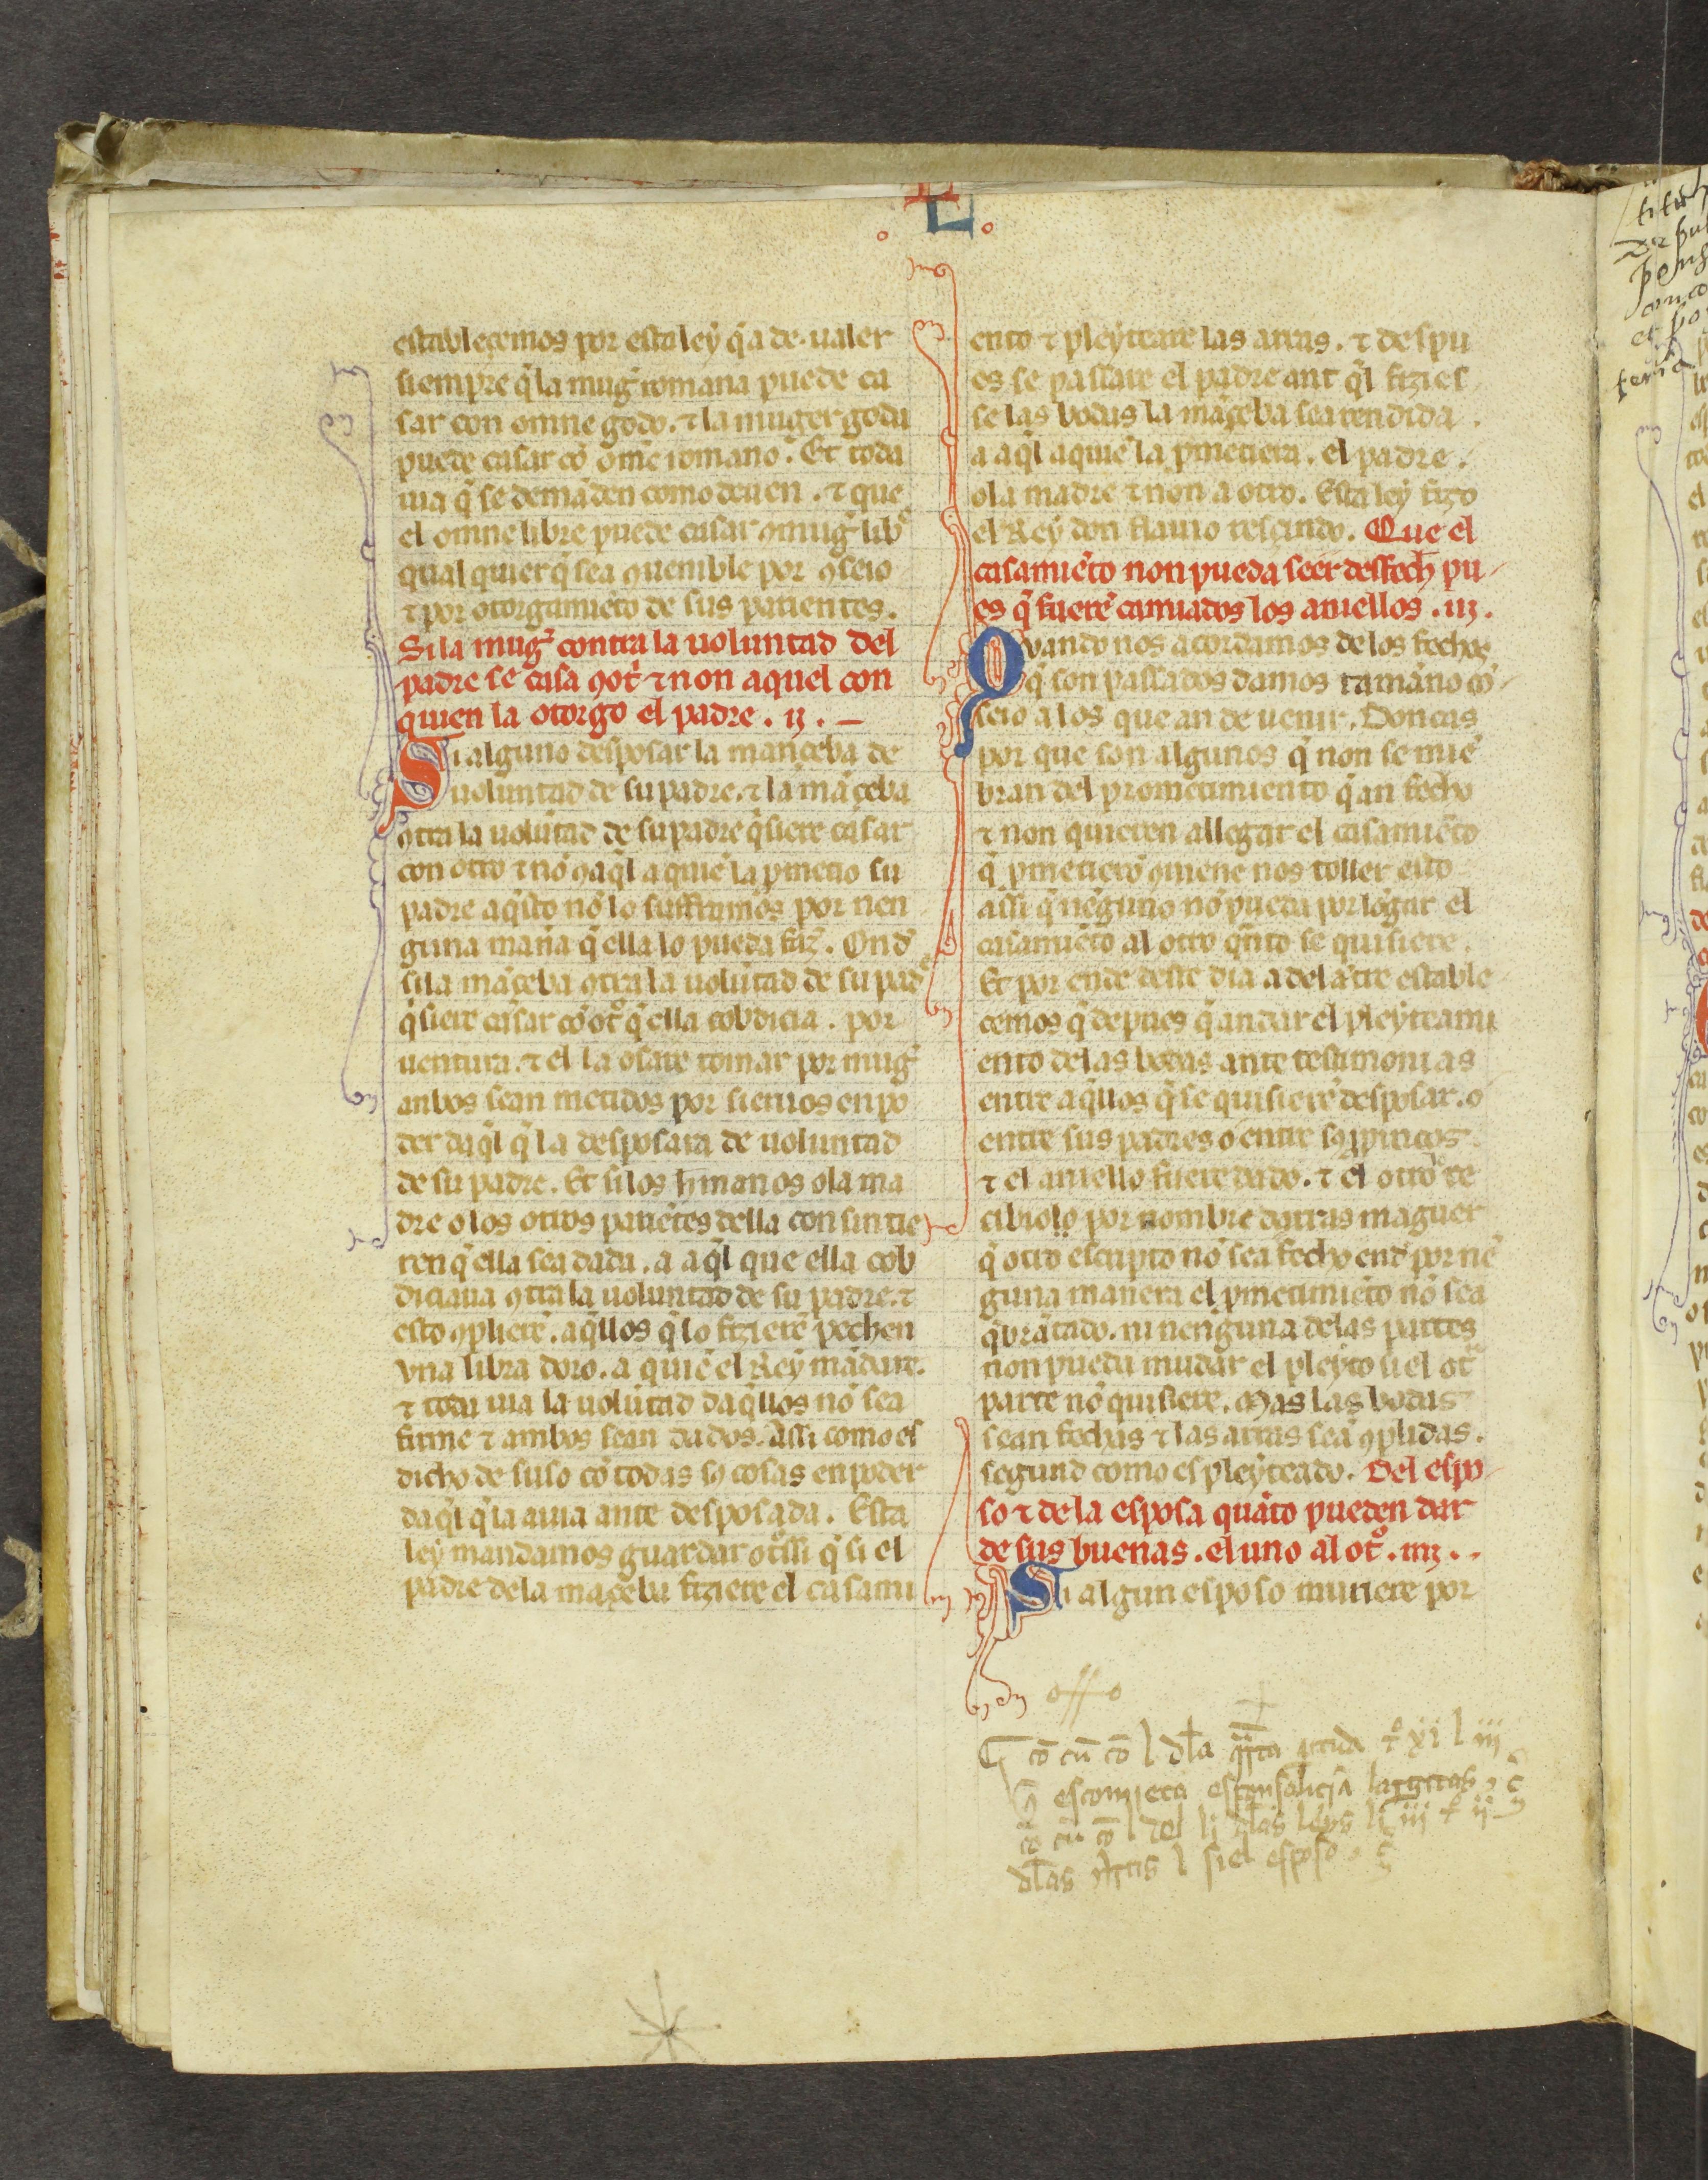 L
establecemos por esta ley q̃ a de ualer
siempre q̃ la mug̃ romana puede ca
sar con omne godo. ⁊ la muger goda
puede casar cõ om̃e romano. Et toda
uia q̃ se demãden como deuen. ⁊ que
el omne libre puede casar ꝯ mug̃ libᵃ
qual quier q̃ sea ꝯuenible por ꝯseio
⁊ por otorgamiẽto de sus parientes.
Si la mug̃ contra la uoluntad del
padre se casa ꝯ otº ⁊ non aquel con
quien la otorgo el padre. ij. –
Si alguno desposar la manceba de
uoluntad de su padre. ⁊ la mãçeba
ꝯtra la uolũtad de su padre q̃siere casar
con otro ⁊ nõ ꝯ aq̃l a quiẽ la ꝓmetio su
padre aq̃sto nõ lo suffrimos por nen
guna mañа q̃ ella lo pueda faz̃. Ond̃
si la mãceba ꝯtra la uolũtad de su padᵉ
q̃siere casar cõ otº q̃ ella cobdicia. por
uentura. ⁊ el la osare tomar por mug̃
anbos sean metidos por sieruos en po
der daq̃l q̃ la desposara de uoluntad
de su padre. Et si los h̃manos o la ma
dre o los otros pariẽtes della consintie
ren q̃ ella sea dada. a aq̃l que ella cob
diciaua ꝯtra la uoluntad de su padre. ⁊
esto ꝯplierẽ. aq̃llos q̃ lo fizierẽ pechen
vna libra doro. a quiẽ el Rey mãdare.
⁊ toda uia la uolũtad daq̃llos nõ sea
firme ⁊ ambos sean dados. assi como es
dicho de suso cõ todas sꝯ cosas en poder
daq̃l q̃ la auia ante desposada. Esta
ley mandamos guardar otº̃ssi q̃ si el
padre dela maçeba fiziere el casami
ento ⁊ pleyteare las arras. ⁊ despu
es se passare el padre ant q̃l fizies
se las bodas la mãçeba sea rendida.
a aq̃l a quiẽ la ꝓmetiera. el padre.
o la madre ⁊ non a otro. Esta ley fizo
el Rey don flauio resçindo. Que el
casamiẽto non pueda seer desfech̃ pu-
es q̃ fuerẽ camiados los aniellos. iij.
Qvando nos acordamos de los fechos
q̃ son passados damos tamãno cõ-
seio a los que an de uenir. Doncas
por que son algunos q̃ non se miẽ
bran del prometimiento q̃ an fecho
⁊ non quieren allegar el casamiẽto
q̃ ꝓmetierõ ꝯuiene nos toller esto
assi q̃ nẽguno nõ pueda porlõgar el
casamiẽto al otro q̃nto se quisiere.
Et por ende deste dia a delãtre estable-
cemos q̃ depues q̃ andar el pleyteami
ento delas bodas ante testimonias
entre aq̃llos q̃ se quisierẽ desposar. o
entre sus padres o entre sꝯ ꝓpincos
⁊ el aniello fuere dado. ⁊ el otro re
cibiolo por nombre darras maguer
q̃ otro escripto nõ sea fecho end̃ por nẽ
guna manera el ꝓmetimiẽto nõ sea
q̃brãtado. ni nenguna delas partes
non pueda mudar el pleyto si el otᵃ
parte nõ quisiere. Mas las bodas
sean fechas ⁊ las arras seã ꝯplidas.
segund como es pleyteado. Del espo-
so ⁊ de la esposa quãto pueden dar
de sus buenas. el uno al otº. iiij..
Si algun esposo muriere por